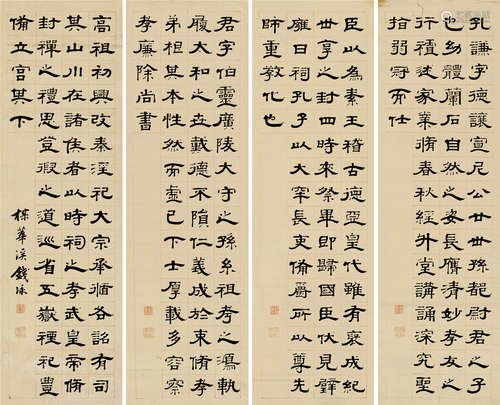 孔謙字德讓宣尼公廿世孫都尉君之子
也幼體蘭石自然之姿長膺清妙孝友之
行禋徒家業脩春秋經升堂講誦深究聖
指弱冠而仕
臣以為素王稽古德亞皇代雖有褒成紀
世享之封四時來祭畢即歸國臣伏見辟
雍日祠孔子以大宰長吏備爵所以尊先
師重教化也
君字伯靈廣陵大守之孫系祖考之鴻軌
履大和之立載德不隕仁義成於束脩孝
弟根其本性然而虛己下士厚載多容察
孝廉除尚書
高祖初興改秦淫祀大宗承循各詔有司
其山川在諸侯者以時祠之孝武皇帝脩
封禪之禮思登假之道巡省五嶽禋祀豐
備立宮其下
楳華溪錢泳